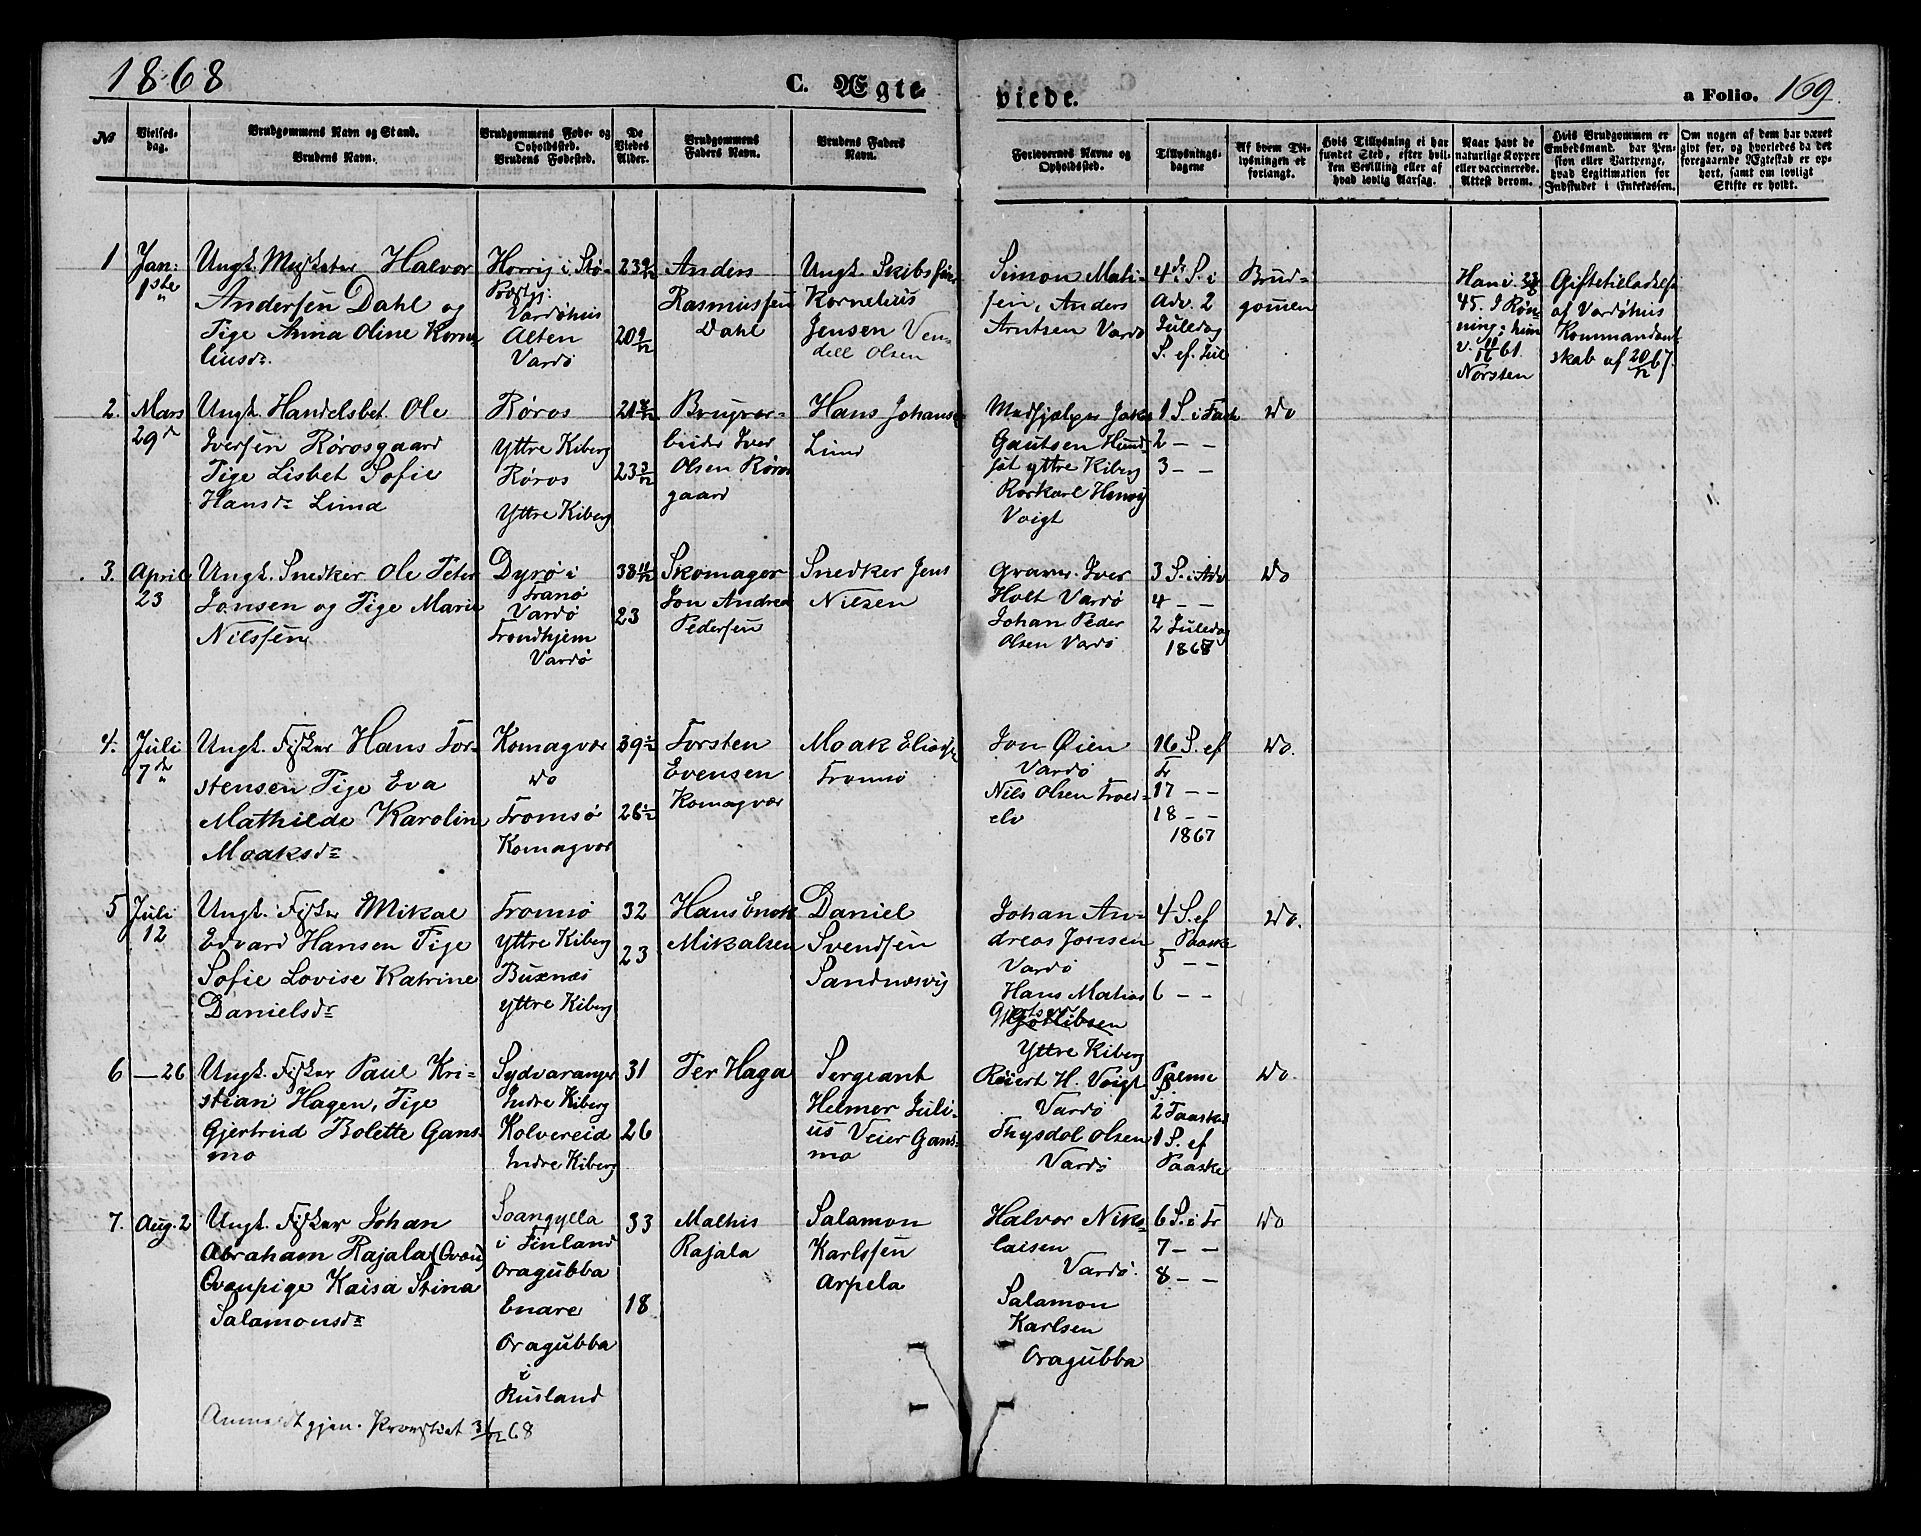 1868
C. Ægte
viede.
a Folio. 169.
№
Vielses-
dag.
Brudgommens Navn og Stand.
Brudens Navn.
Brudgommens Føde- og
Opholdssted.
Brudens Fødested.
De
Viedes
Alder.
Brudgommens
Faders Navn.
Brudens Faders
Navn.
Forlovernes Navne og
Opholdssted.
Tillysnings-
dagene
Af hvem Til-
lysningen er
forlangt.
Hvis Tillysning ei har
fundet Sted, efter hvil-
ken Bevilling eller af
hvad lovlig Aarsag.
Naar havt de
naturlige Kopper
eller vaccinerede.
Attest derom.
Hvis Brudgommen er
Embedsmand, har Pen-
sion eller Vartpenge,
hvad Legitimation for
Indskudet i Enkekassen.
Om nogen af dem har været
givt før, og hvorledes da det
foregaaende Ægteskab er op-
hørt, samt om lovligt
Skifte er holdt.
1
Jan:
1ste
Ungk. Musketer Halvor
Andersen Dahl og
Pige Anna Oline Korne-
liusdr.
Horrig i Stø-
Vardøhus
Alten
Vardø
20 9/12
Anders
Rasmussen
Dahl
Ungk. Skibsfører
Kornelius
Jensen Ven-
dell Olsen
Simon Mati-
sen, Anders
Arntsen Vardø
4de S. i
Adv. 2
Juledag
S. ef. Jul
Brud-
gommen
Han v.
45. I Røn-
ning; hun
v. 11/16 61.
Norsten
Giftetilladelse
af Vardøhus
Kommandant
skab af 20/12 67.
2.
Mars
29de
Ungk. Handelsbet. Ole
Iversen Rørosgaard
Pige Lisbet Sofie
Hansdr Lund
Røros
Yttre Kiberg
Røros
Yttre Kiberg
23 3/12
Brugsar-
beider Iver
Olsen Røros
gaard
Hans Johansen
Lund
Medhjælper Jak.
Gautsen Hund-
sat yttre Kiberg
Rorkarl Henrij
Voigt
1 S. i Fast
2 – –
3 – –
Do
3.
April
23
Ungk. Snedker Ole Peter
Jonsen og Pige Marie
Nilssen
Dyrø i
Tranø
Vardø
Trondhjem
Vardø
38 11/12
23
Skomager
Jon Andreas
Pedersen
Snedker Jens
Nilsen
Graver Iver
Holt Vardø
Johan Peder
Olsen Vardø
3 S. i Adv
4 – –
2 Juledag
1867
Do
4.
Juli
7de
Ungk. Fisker Hans Tor-
stensen Pige Eva
Mathilde Karoline
Moaksdr
Komagvær
Do
Tromsø
Komagvær
39 1/2
26 1/2
Torsten
Evensen
Komagvær
Moak Elias
Tromsø
Jon Øien
Vardø
Nils Olsen Troes-
elv
16 S. ef
Tr
17 – –
18 – –
1867
Do.
5
Juli
12
Ungk. Fisker Mikal
Edvard Hansen Pige
Sofie Lovise Katrine
Danielsdr
Tromsø
Yttre Kiberg
Buxnæs
Yttre Kiberg
32
23
Hans Enok
Mikalsen
Daniel
Svendsen
Sandnæsvig
Johan An-
dreas Jonsen
Vardø
Hans Matias
Yttre Kiberg
4 S. ef
Paaske
5 – –
6 – –
Do.
6
– 26
Ungk. Fisker Paul Kri-
stian Hagen, Pige
Gjertrud Bolette Gans-
mo
Sydvaranger
Indre Kiberg
Kolvereid
Indre Kiberg
31
26
Per Haga
Sergeant
Helmer Juli-
us Veier Gans-
mo
Reiert H. Voigt
Vardø
Thysdol Olsen
Vardø
Palme
S.
2 Paaske
1 S. ef
Paaske
Do.
7.
Aug. 2
Ungk. Fisker Johan
Abraham Rajala (Qvæn)
Qvænpige Kaisa Stina
Salamonsdr
Soangylla
i Finland
Oragubba
Enare
Oragubba
i
Rusland
33
18
Mathis
Rajala
Salamon
Karlssen
Arpela
Halvor Niko-
laisen
Vardø.
Salamon
Karlsen
Oragubba
6 S. i Tr
7 – –
8 – –
Do
Anmeldt gjen. Provstiet 31/12 68